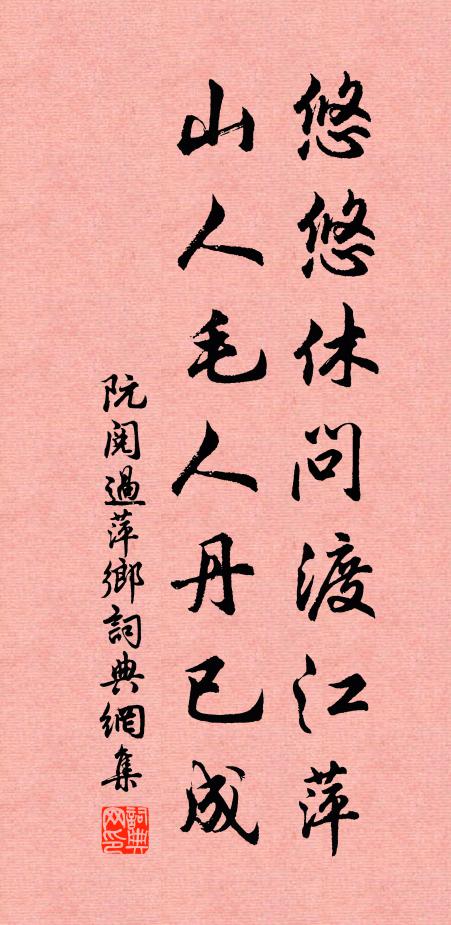 悠悠休问渡江萍
山人毛人丹已成
阮阅過萍鄉詞典網集
詞典网印